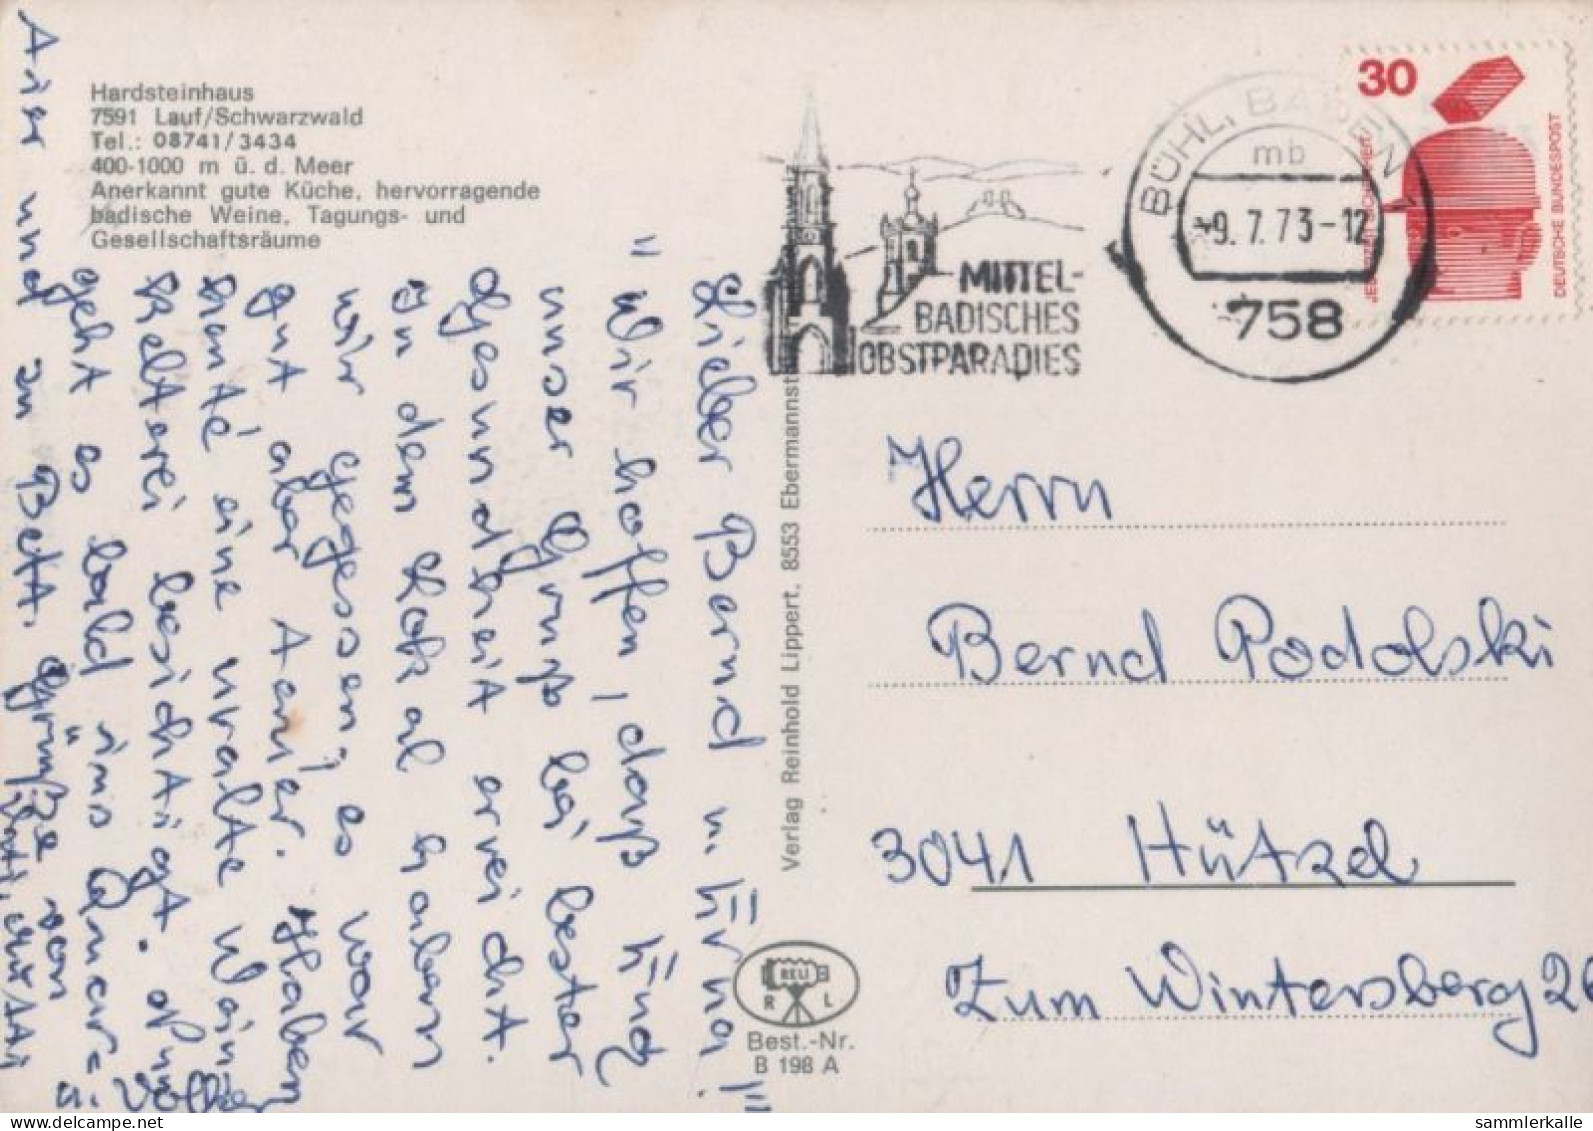 Hardsteinhaus
7591 Lauf/Schwarzwald
Tel.: 08741/3434
400-1000 m ü. d. Meer
Anerkannt gute Küche, hervorragende
badische Weine, Tagungs- und
Gesellschaftsräume
MITTEL-
BADISCHES
OBSTPARADIES
BÜHL, BADEN 1
mb
-9.7.73-12
758
30
JESU
DEUTSCHE BUNDESPOST
Verlag Reinhold Lippert, 8553 Ebermannst
RELI
R L
Best.-Nr.
B 198 A
Herrn
Bernd Podolski
3041 Hützel
Zum Wintersberg 26
Lieber Bernd u.
Wir hoffen, daß
unser Gruß bei bester
Gesundheit erreicht.
In dem Lokal haben
wir gegessen, es war
gut aber teuer. Haben
heute eine uralte Wein
Kelterei besichtigt.
geht es bald ins
und zu Bett. Grüße von